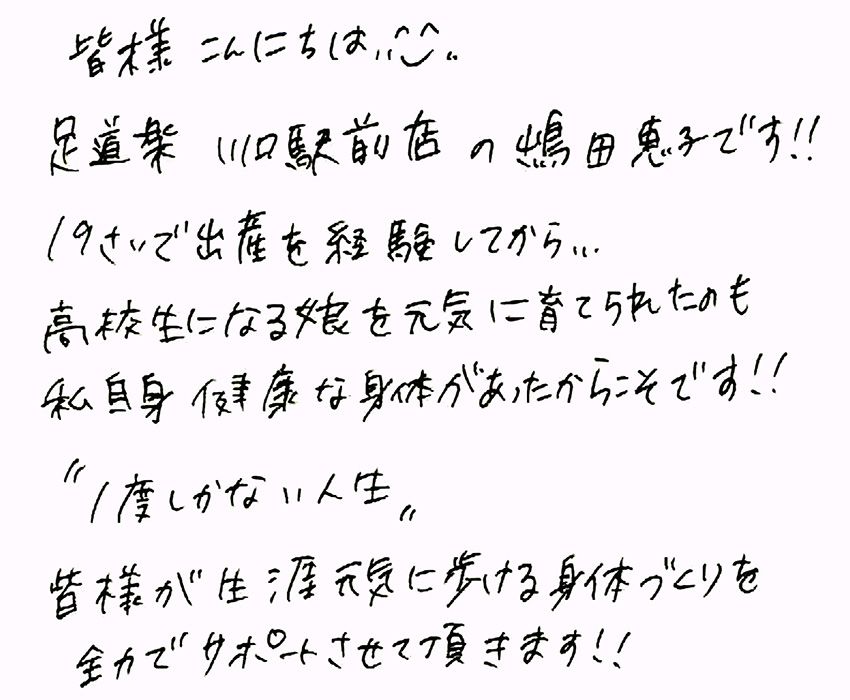 皆様 こんにちは..^^..
足道楽 川口駅前店 の 嶋田恵子です!!
19さいで出産を経験してから...
高校生になる娘を元気に育てられたのも
私自身 健康な身体があったからこそです!!
〝1度しかない人生〟
皆様が生涯元気に歩ける身体づくりを
全力でサポートさせて頂きます!!